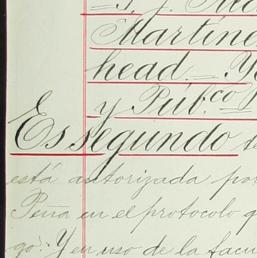 Martíne
head. = Y
y Púb.co
Es segundo te
está autorizada por
Peña en el protocolo q
go: Y en uso de la facu